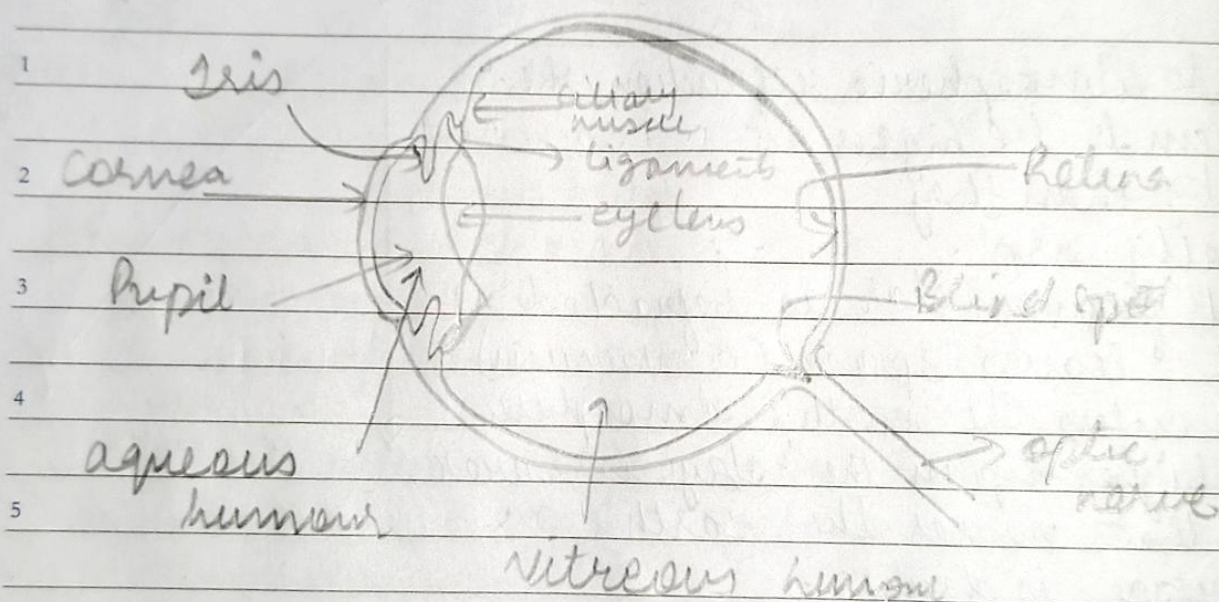 1
Iris
ciliary
muscle
ligaments
2 Cornea
Retina
eyelens
3 Pupil
Blind spot
4
aqueous
humour
optic
nerve
5
Vitreous humour